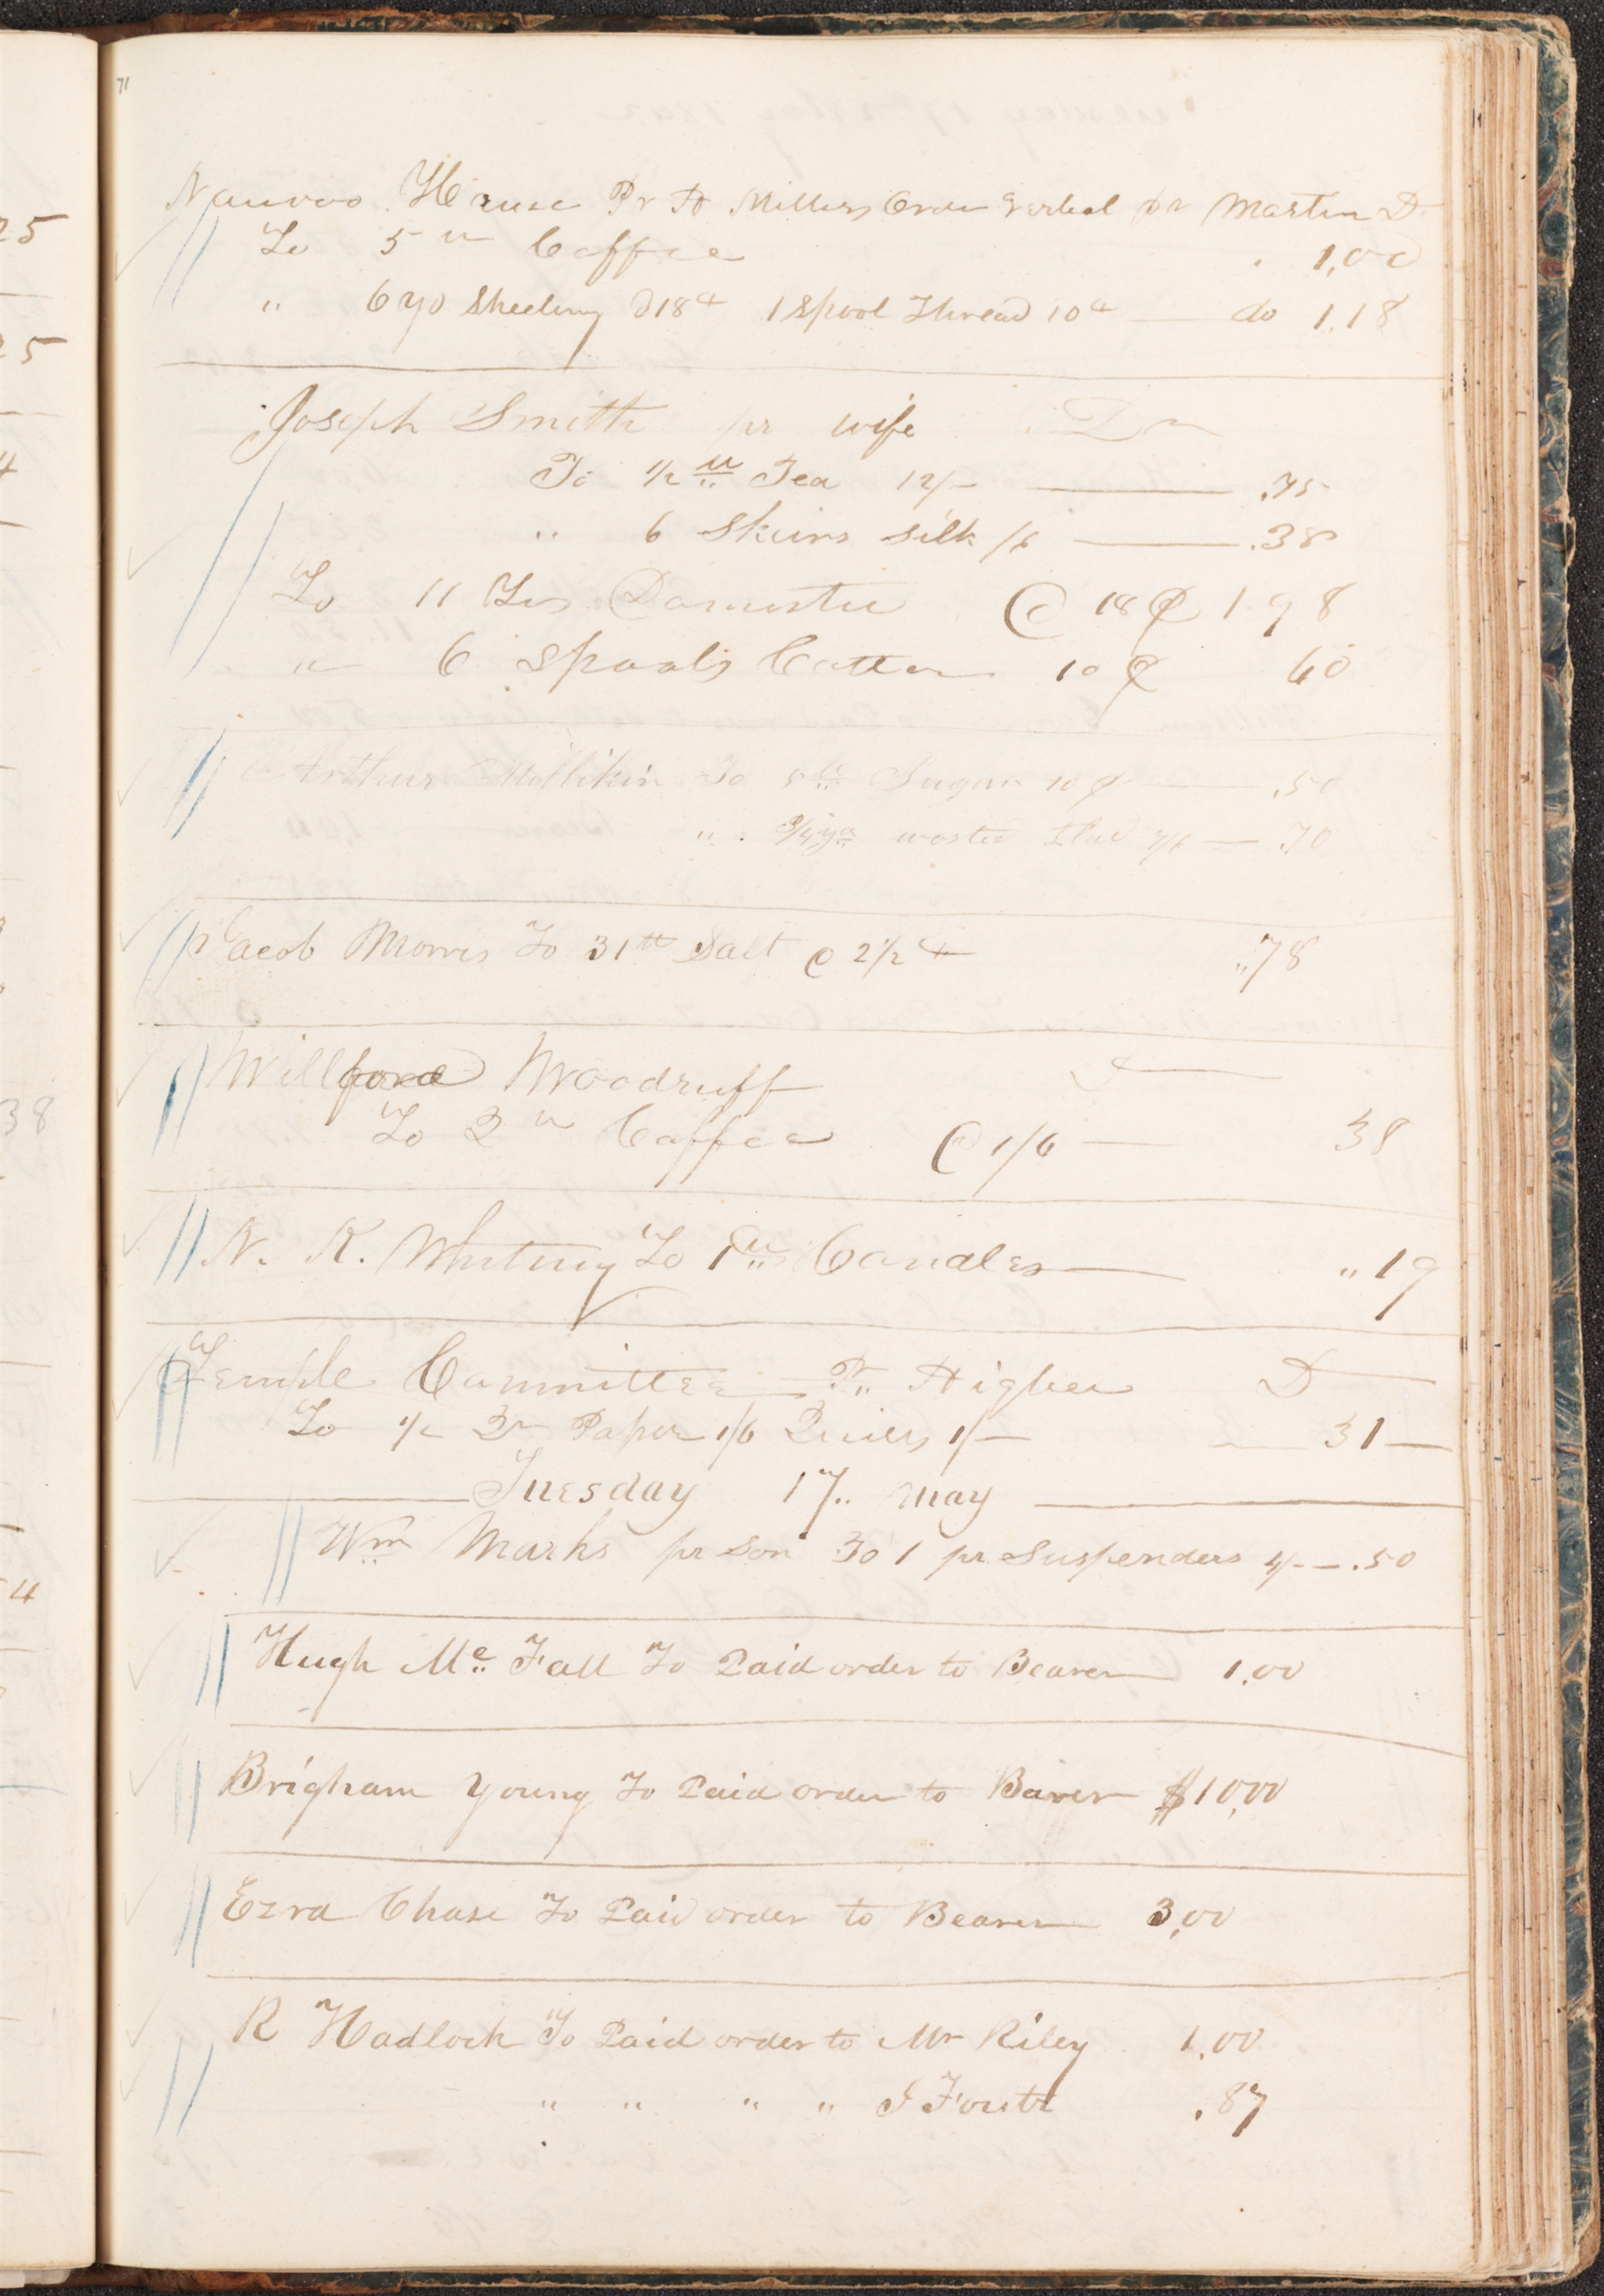 71
Nauvoo House Pr Millers Order verbal pr Martin D
To 5 lb Coffee 1,00
" 6 yd Sheeting @18¢ 1 Spool Thread 10¢ do 1.18
Joseph Smith pr wife Dr
To 1/2 lb Tea 12/- .75
" 6 Skeins Silk /6 .38
To 11 Yds Domestic @ 18¢ 1.98
" 6 Spools Cotton 10¢ 60
Arthur Millikin To 5 lb Sugar 10¢ .50
" 3/4 yd .70
Jacob Morris To 31 lb Salt @ 2 1/2¢ "78
Willford Woodruff D
To 2 lb Coffee @ 1/6 38
N. K. Whitney To 1 lb Candles "19
Temple Committee Pr Higbee D
To 1/2 Qr Paper 1/6 1/- 31
Tuesday 17" May
Wm Marks pr Son To 1 pr Suspenders 4/- .50
Hugh Mc Fall To Paid order to Bearer 1.00
Brigham Young To Paid order to Barer $10,00
Ezra Chase To Paid order to Bearer 3,00
R Hadlock To Paid order to Mr Riley 1.00
" " " " .87
25
25
4
38
4